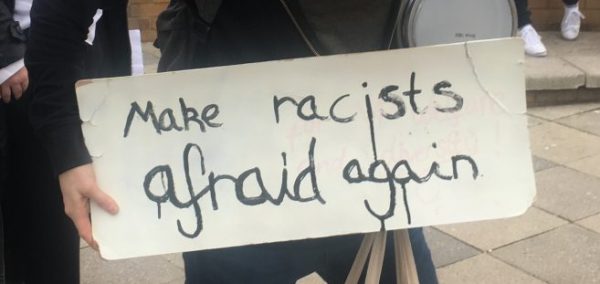 Make racists
afraid again